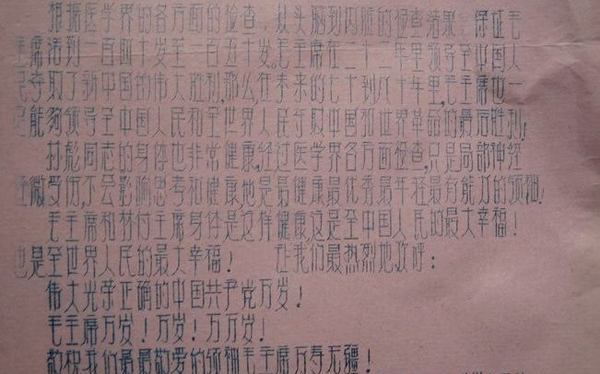 根据医学界的各方面的检查。从头脑到内脏的检查结果,保证毛
主席活到一百四十岁至一百五十岁,毛主席在二十二年里领导全中国人
民夺取了新中国的伟大胜利,那么,在未来的七十到八十年里,毛主席也一
定能够领导全中国人民和全世界人民夺取中国和世界革命的最后胜利;
林彪同志的身体也非常健康,经过医学界各方面检查,只是局部神经
轻微受伤,不会影响思考和健康他是最健康最优秀最年轻最有能力的领袖.
毛主席和林付主席身体是这样健康,这是全中国人民的最大幸福!
也是全世界人民的最大幸福! 让我们最热烈地欢呼:
伟大光荣正确的中国共产党万岁!
毛主席万岁!万岁!万万岁!
敬祝我们最最敬爱的领袖毛主席万寿无疆!